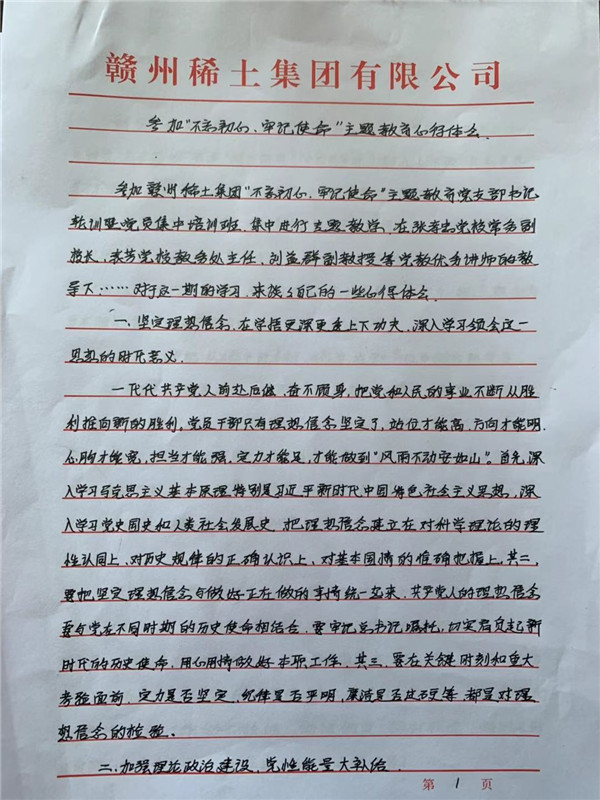 赣州稀土集团有限公司
参加"不忘初心、牢记使命"主题教育心得体会
参加赣州稀土集团"不忘初心、牢记使命"主题教育党支部书记
轮训暨党员集中培训班,集中进行主题教学,在张孝忠党校常务副
校长,袁芳党校教务处主任,刘益群副教授等党教优秀讲师的教
导下……对于这一期的学习,来谈谈自己的一些心得体会。
一、坚定理想信念,在学悟更深更透上下功夫,深入学习领会这一
思想的时代意义。
一代代共产党人前赴后继,奋不顾身,把党和人民的事业不断从胜
利推向新的胜利,党员干部只有理想信念坚定了,站位才能高,方向才能明,
心胸才能宽,担当才能强,定力才能足,才能做到"风雨不动安如山"。首先,深
入学习马克思主义基本原理特别是习近平新时代中国特色社会主义思想,深
入学习党史国史和人类社会发展史,把理想信念建立在对科学理论的理
性认同上、对历史规律的正确认识上、对基本国情的准确把握上。其二,
要把坚定理想信念与做好正在做的事情统一起来,共产党人的理想信念
要与党在不同时期的历史使命相结合,要牢记总书记嘱托,切实肩负起新
时代的历史使命,用心用情做好本职工作。其三,要在关键时刻和重大
考验面前,定力是否坚定,纪律是否严明,廉洁是否过硬等都是对理
想信念的检验。
二、加强理论政治建设,党性能量大补给。
第 1 页